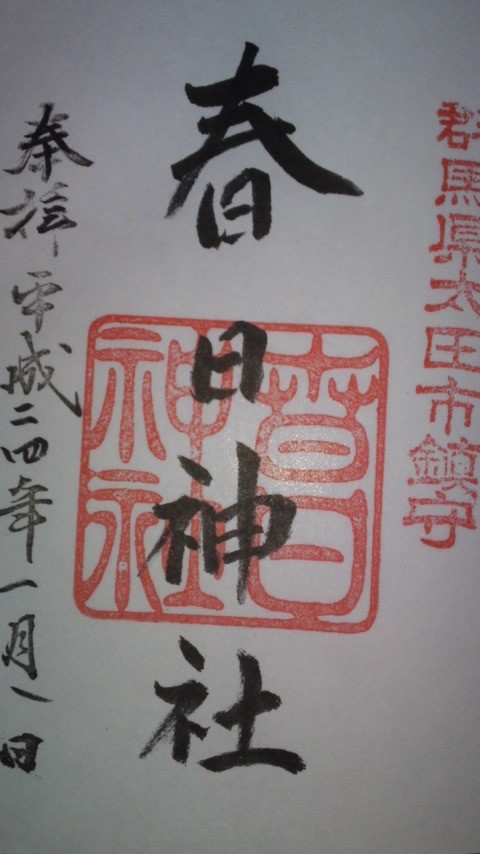 群馬県太田市鎮守
春日神社
春日神社
奉拝 平成二四年一月一日